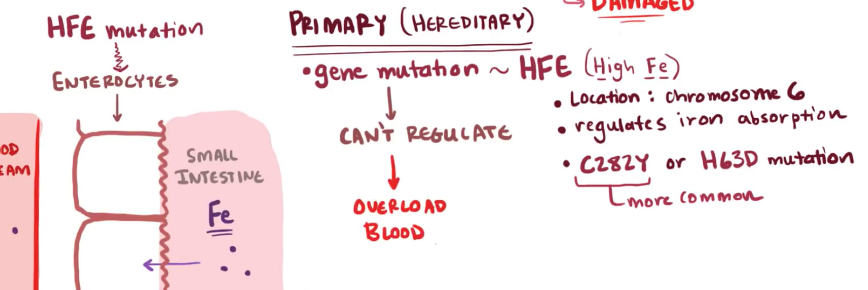 DAMAGED
HFE mutation
ENTEROCYTES
SMALL
INTESTINE
Fe
PRIMARY (HEREDITARY)
• gene mutation ~ HFE (High Fe)
CAN'T REGULATE
OVERLOAD
BLOOD
• Location: chromosome 6
• regulates iron absorption
• C282Y or H63D mutation
more common